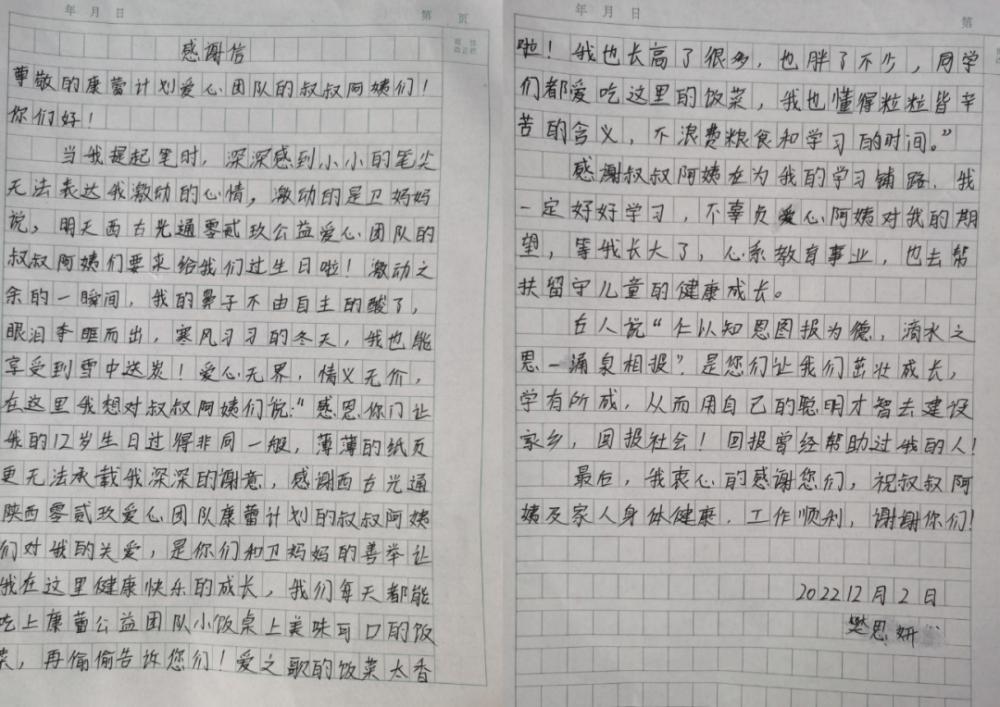 年 月 日
第 页
感谢信
尊敬的康蕾计划爱心团队的叔叔阿姨们！
你们好！
当我提起笔时，深深感到小小的笔尖
无法表达我激动的心情，激动的是卫妈妈
说，明天西古光通零贰玖公益爱心团队的
叔叔阿姨们要来给我们过生日啦！激动之
余的一瞬间，我的鼻子不由自主的酸了，
眼泪夺眶而出，寒风习习的冬天，我也能
享受到雪中送炭！爱心无界，情义无价，
在这里我想对叔叔阿姨们说："感恩你门让
我的12岁生日过得非同一般，薄薄的纸页
更无法承载我深深的谢意，感谢西古光通
陕西零贰玖爱心团队康蕾计划的叔叔阿姨
们对我的关爱，是你们和卫妈妈的善举让
我在这里健康快乐的成长，我们每天都能
吃上康蕾公益团队小饭桌上美味可口的饭
菜，再偷偷告诉您们！爱之歌的饭菜太香
年 月 日
第
啦！我也长高了很多，也胖了不少，同学
们都爱吃这里的饭菜，我也懂得粒粒皆辛
苦的含义，不浪费粮食和学习的时间。"
感谢叔叔阿姨在为我的学习铺路，我
一定好好学习，不辜负爱心阿姨对我的期
望，等我长大了，心系教育事业，也去帮
扶留守儿童的健康成长。
古人说"仁以知恩图报为德，滴水之
恩一涌泉相报"是您们让我们茁壮成长，
学有所成，从而用自己的聪明才智去建设
家乡，回报社会！回报曾经帮助过我的人！
最后，我衷心的感谢您们，祝叔叔阿
姨及家人身体健康，工作顺利，谢谢你们！
2022 12月2日
樊思妍